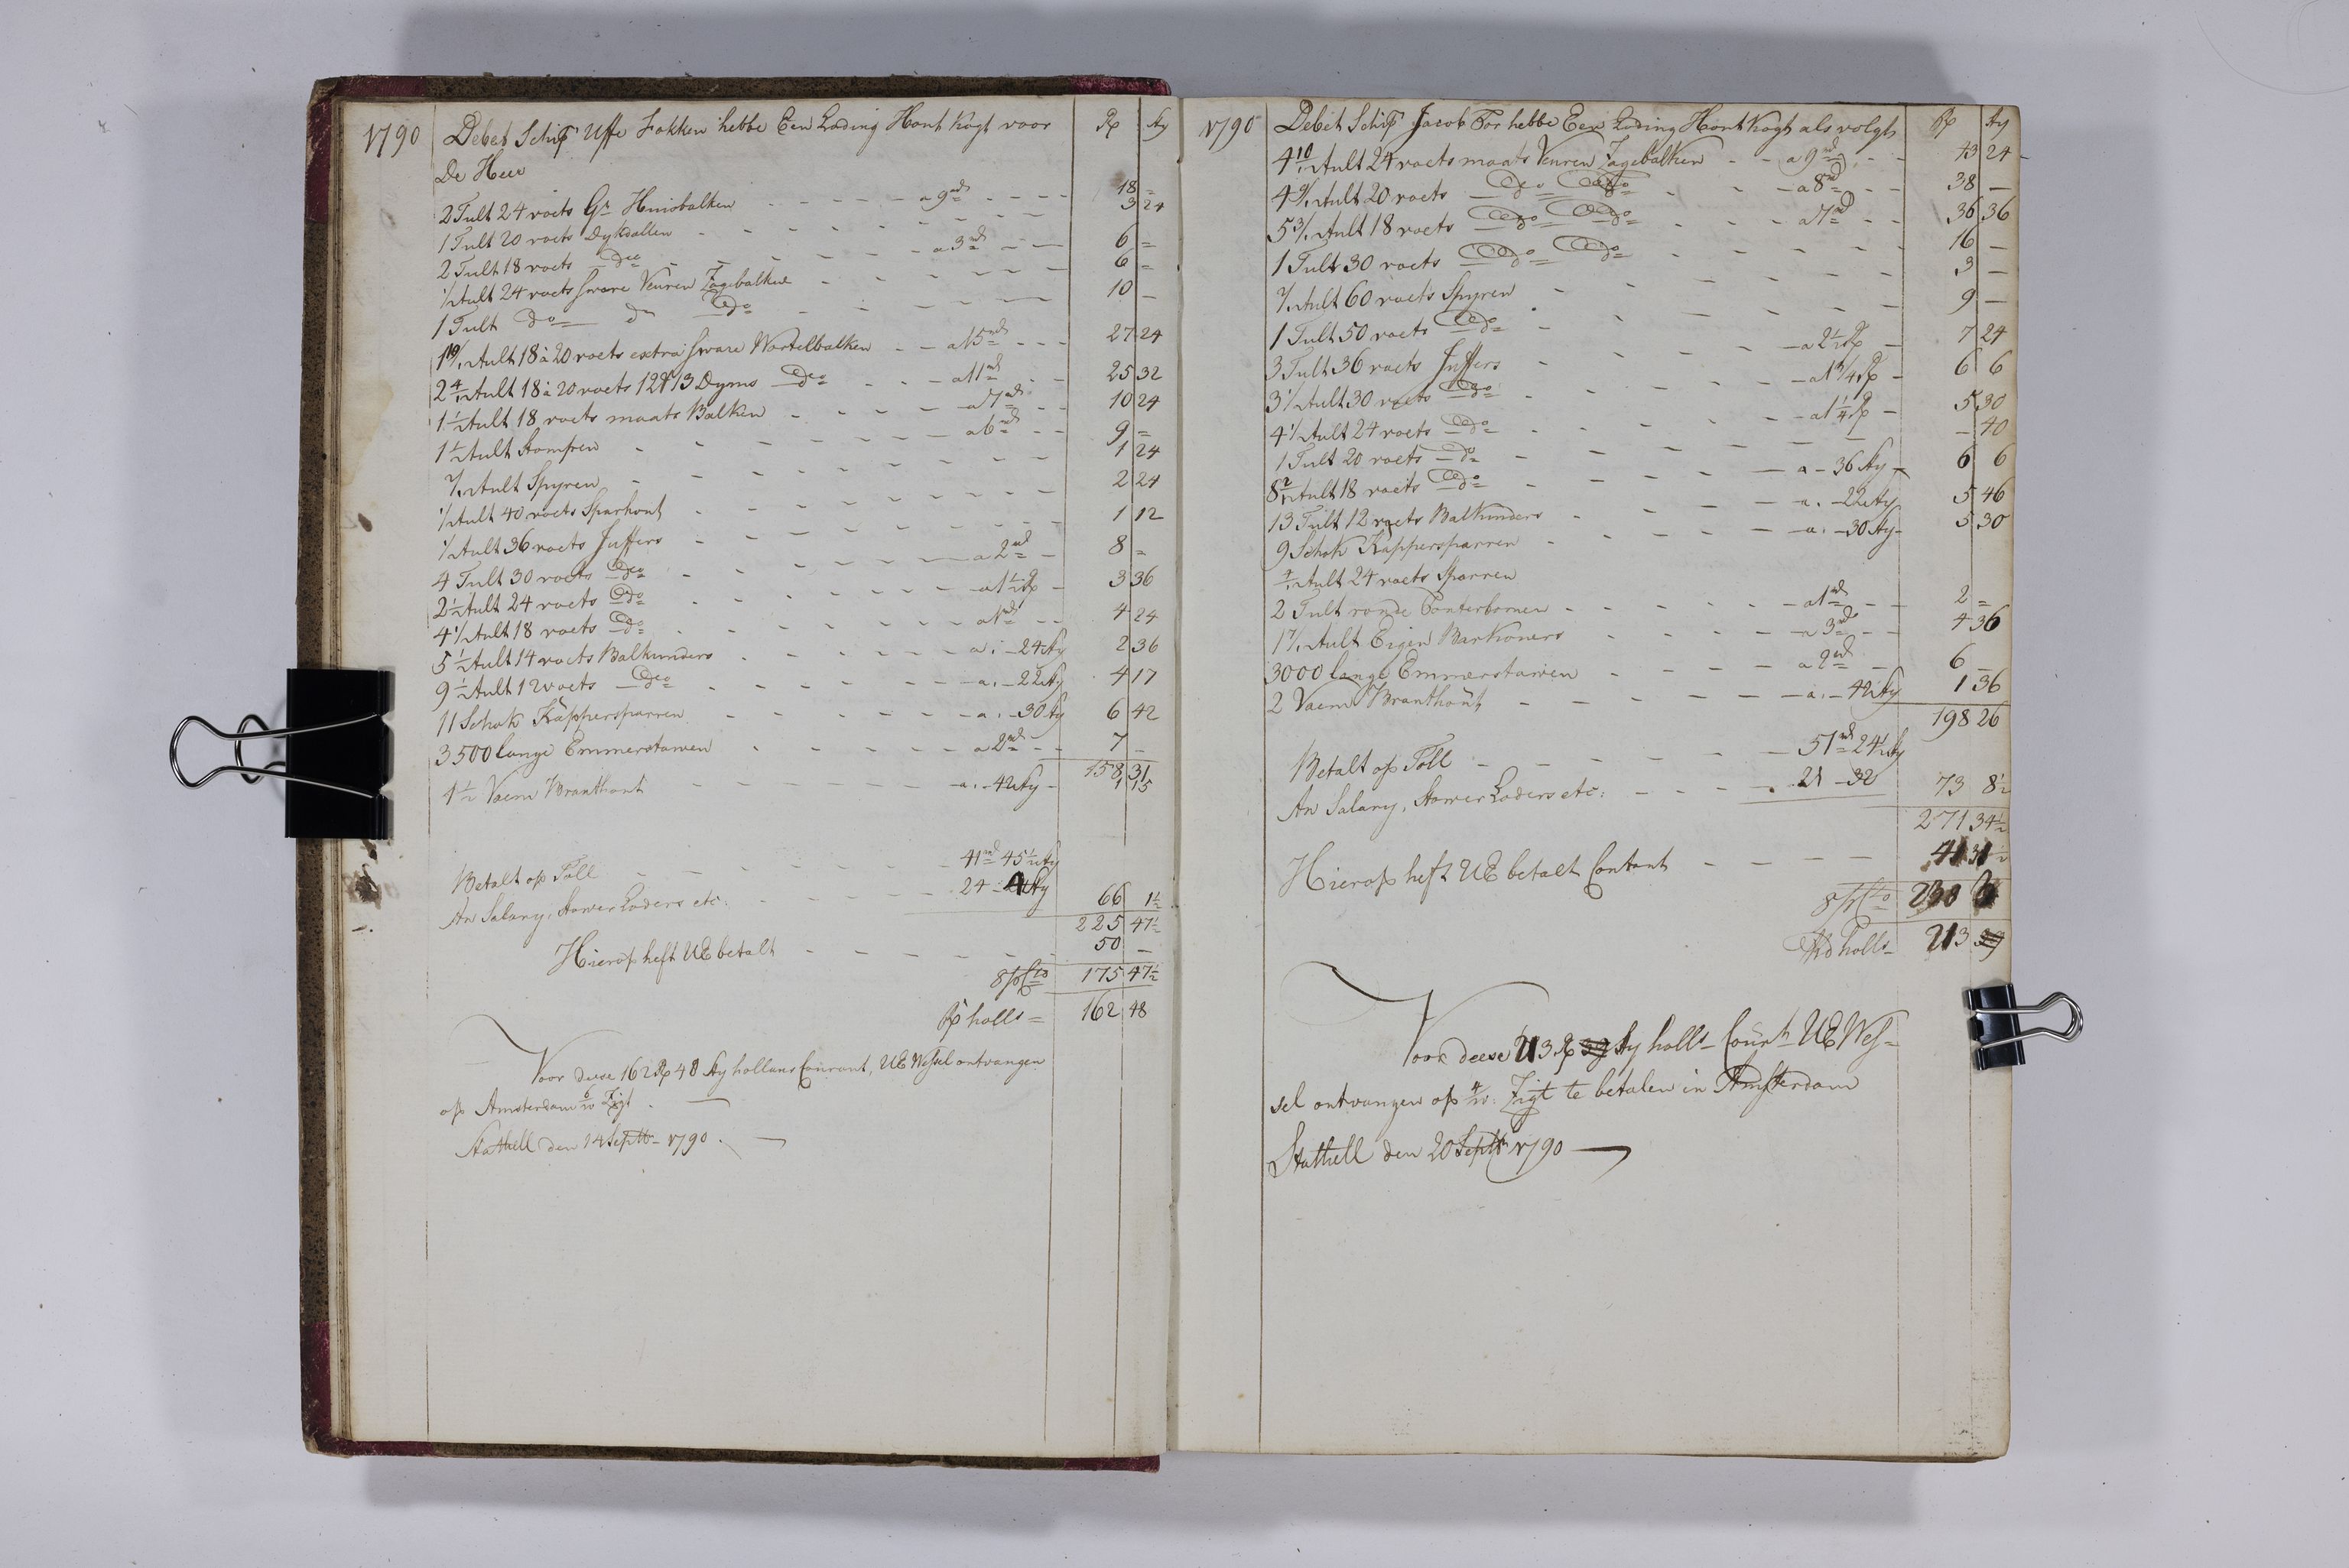 1790 Debet Schip Uffe Fokken hebbe Een Loding Hout Kogt voor R Sty
De Heer
2 Tult 24 voets Gr Huisbalken a 9 18 =
1 Tult 20 voets Dykdallen 3 24
2 Tult 18 voets do a 3 6 =
1/2 Tult 24 voets sware Veuren Zagebalken 6 =
1 Tult do d do 10 –
1 10/12 Tult 18 à 20 voets extra sware Wortelbalken a 15 27 24
2 4/12 Tult 18 à 20 voets 12 à 13 Dyms do a 11 25 32
1 1/2 Tult 18 voets maats Balken a 7 10 24
1 1/2 Tult Stompen a 6 9 =
Tult Spyren 1 24
1/2 Tult 40 voets Sparhout 2 24
1/2 Tult 36 voets Juffers 1 12
4 Tult 30 voets do a 2 8 =
2 1/2 Tult 24 voets do a 1 1/2 R 3 36
4 1/2 Tult 18 voets do a 1 4 24
5 1/2 Tult 14 voets Balkunders a : – 24 Sty 2 36
9 1/2 Tult 12 voets do a . – 22 Sty 4 17
11 Schok Kappersparren a . – 30 Sty 6 42
3500 lange Emmerstawen a 2 7 –
1 1/2 Vaem Branthout a . – 42 Sty 1 15
158 31
Betalt op Toll 41 45 1/2 Sty
An Salary, Stower Loders etc: 24 – 4 Sty 66 1 1/2
225 47 1/2
Hierop heft UE betalt 50 –
8 pCto 175 47 1/2
R holls = 162 48
Voor deese 162 R 48 Sty hollans Courant, UE Wessel ontvangen
op Amsterdam 6/w Zigt
Stathell den 14 Septb – 1790
1790 Debet Schip Jacob Tor hebbe Een Loding Hout Kogt als volgt R Sty
4 10/12 Tult 24 voets maats Veuren Zagebalken a 9 43 24
4 9/12 Tult 20 voets do do a 8 38 –
5 3/12 Tult 18 voets do do a 7 36 36
1 Tult 30 voets do do 16 –
Tult 60 voets Spyren 3 –
1 Tult 50 voets do 9 –
3 Tult 36 voets Juffers a 2 1/2 R 7 24
3 1/2 Tult 30 voets do a 1 3/4 R 6 6
4 1/2 Tult 24 voets do a 1 1/4 R 5 30
1 Tult 20 voets do – 40
8 2/12 Tult 18 voets do a – 36 Sty 6 6
13 Tult 12 voets Balkunders a . – 22 Sty 5 46
9 Schok Kappersparren a . – 30 Sty 5 30
Tult 24 voets Sparren
2 Tult ronde Ponterbomen a 1 2 =
Tult Eigen Barkoners a 3 4 36
3000 lange Emmerstawen a 2 6 –
2 Vaem Branthout a . – 42 Sty 1 36
198 26
Betalt op Toll 51 24 1/2 Sty
An Salary, Stower Loders etc: 21 – 32 73 8 1/2
271 34 1/2
Hierop heft UE betalt Contant
8 pCto
holls
Voor deese 213 R Sty holls – Court UE Wes=
sel ontvangen op 4/w: Zigt te betalen in Amsterdam
Stathell den 20 Septb 1790